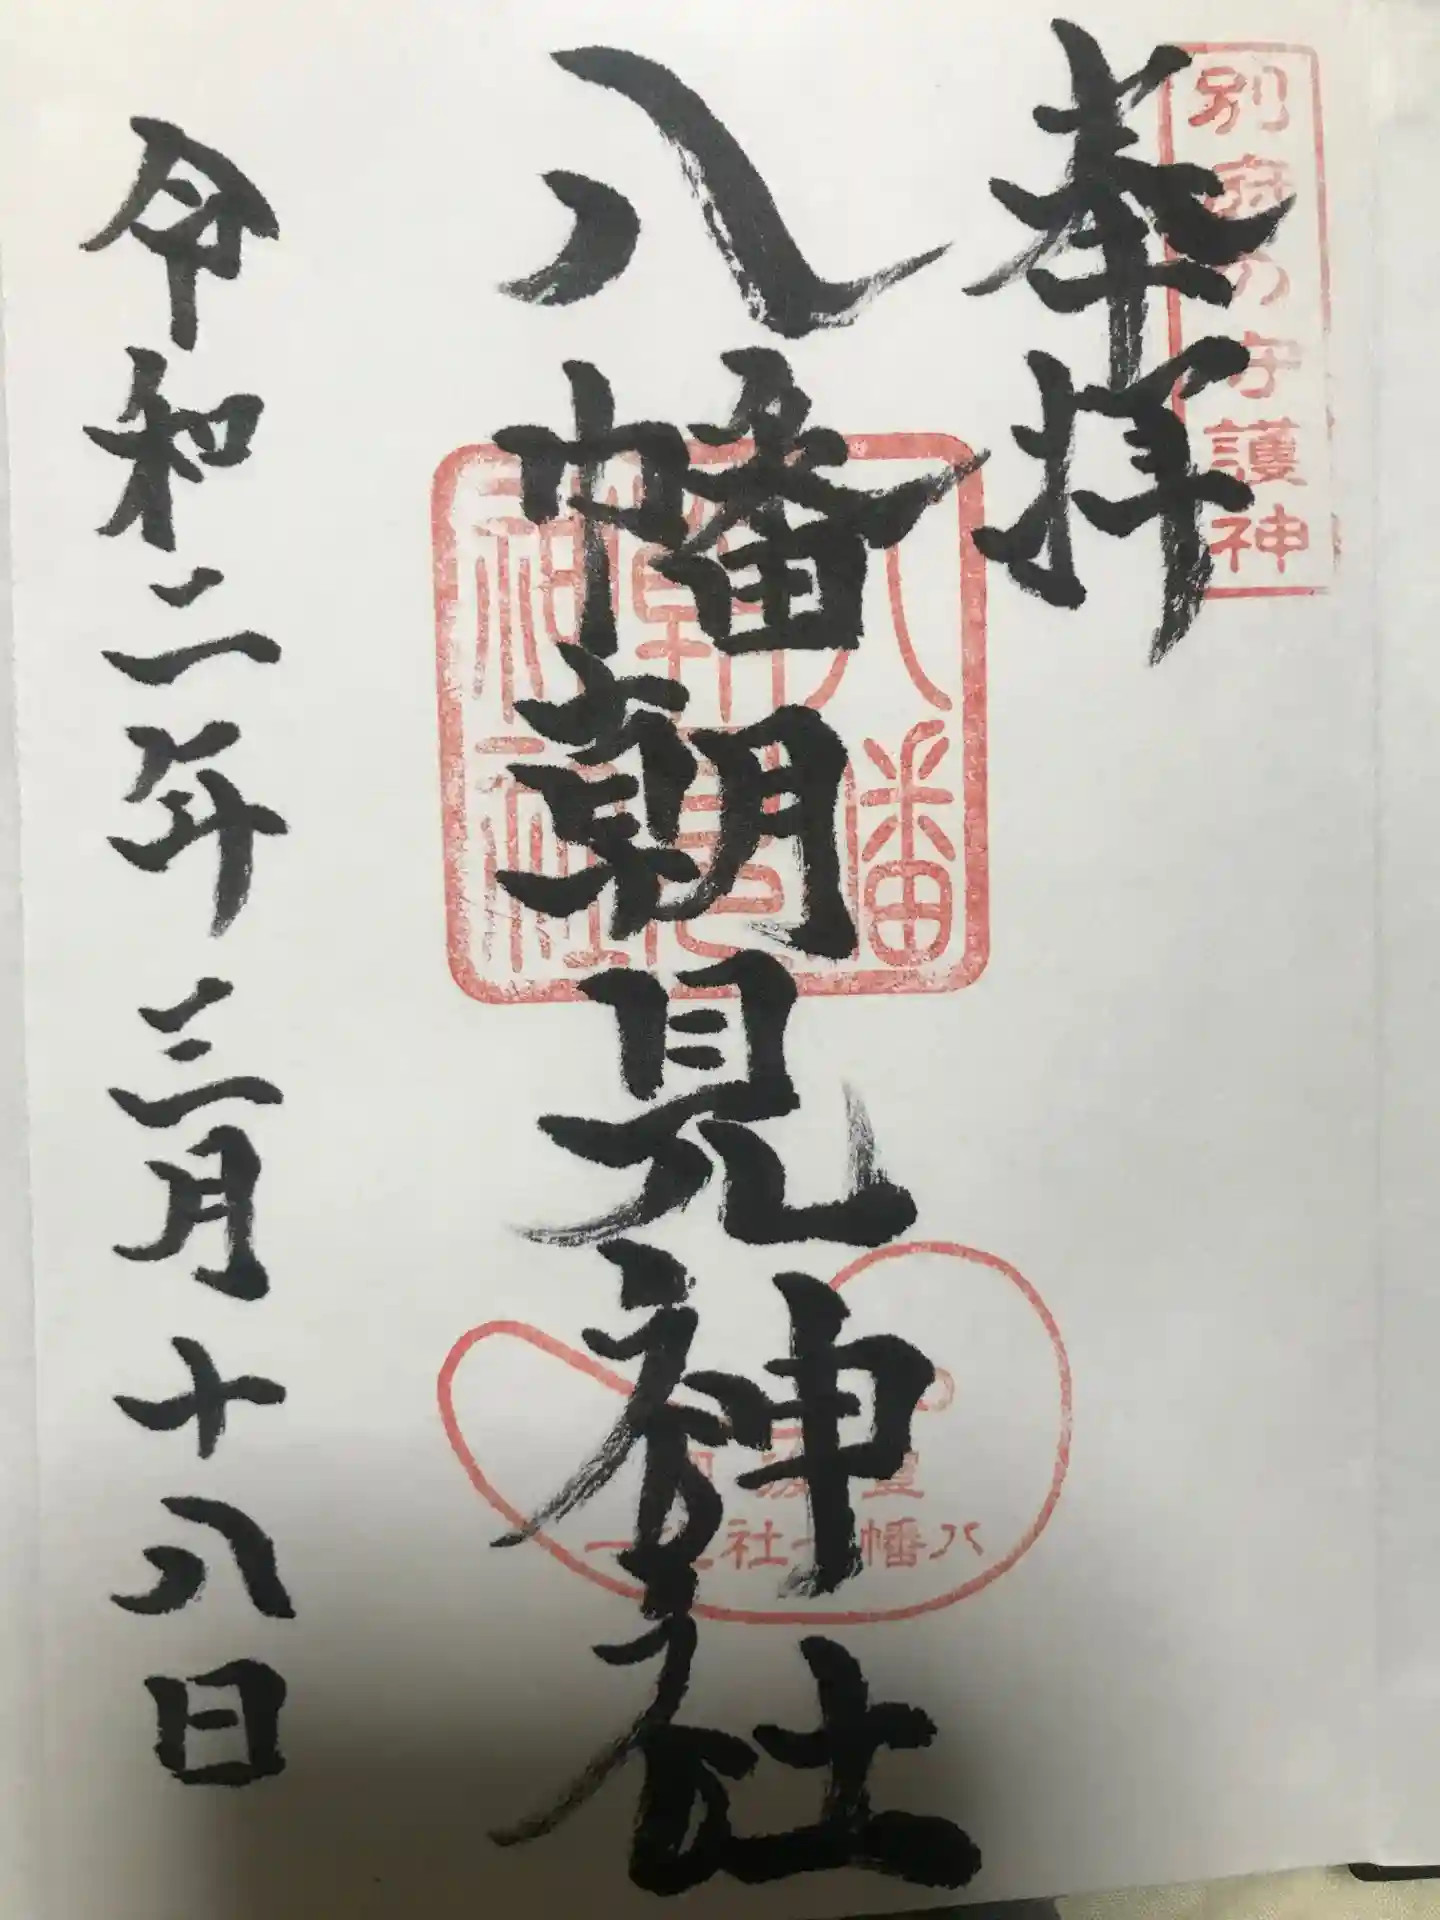 別府の守護神
奉拝
八幡朝見神社
八幡朝見神社
八幡
令和二年三月十八日